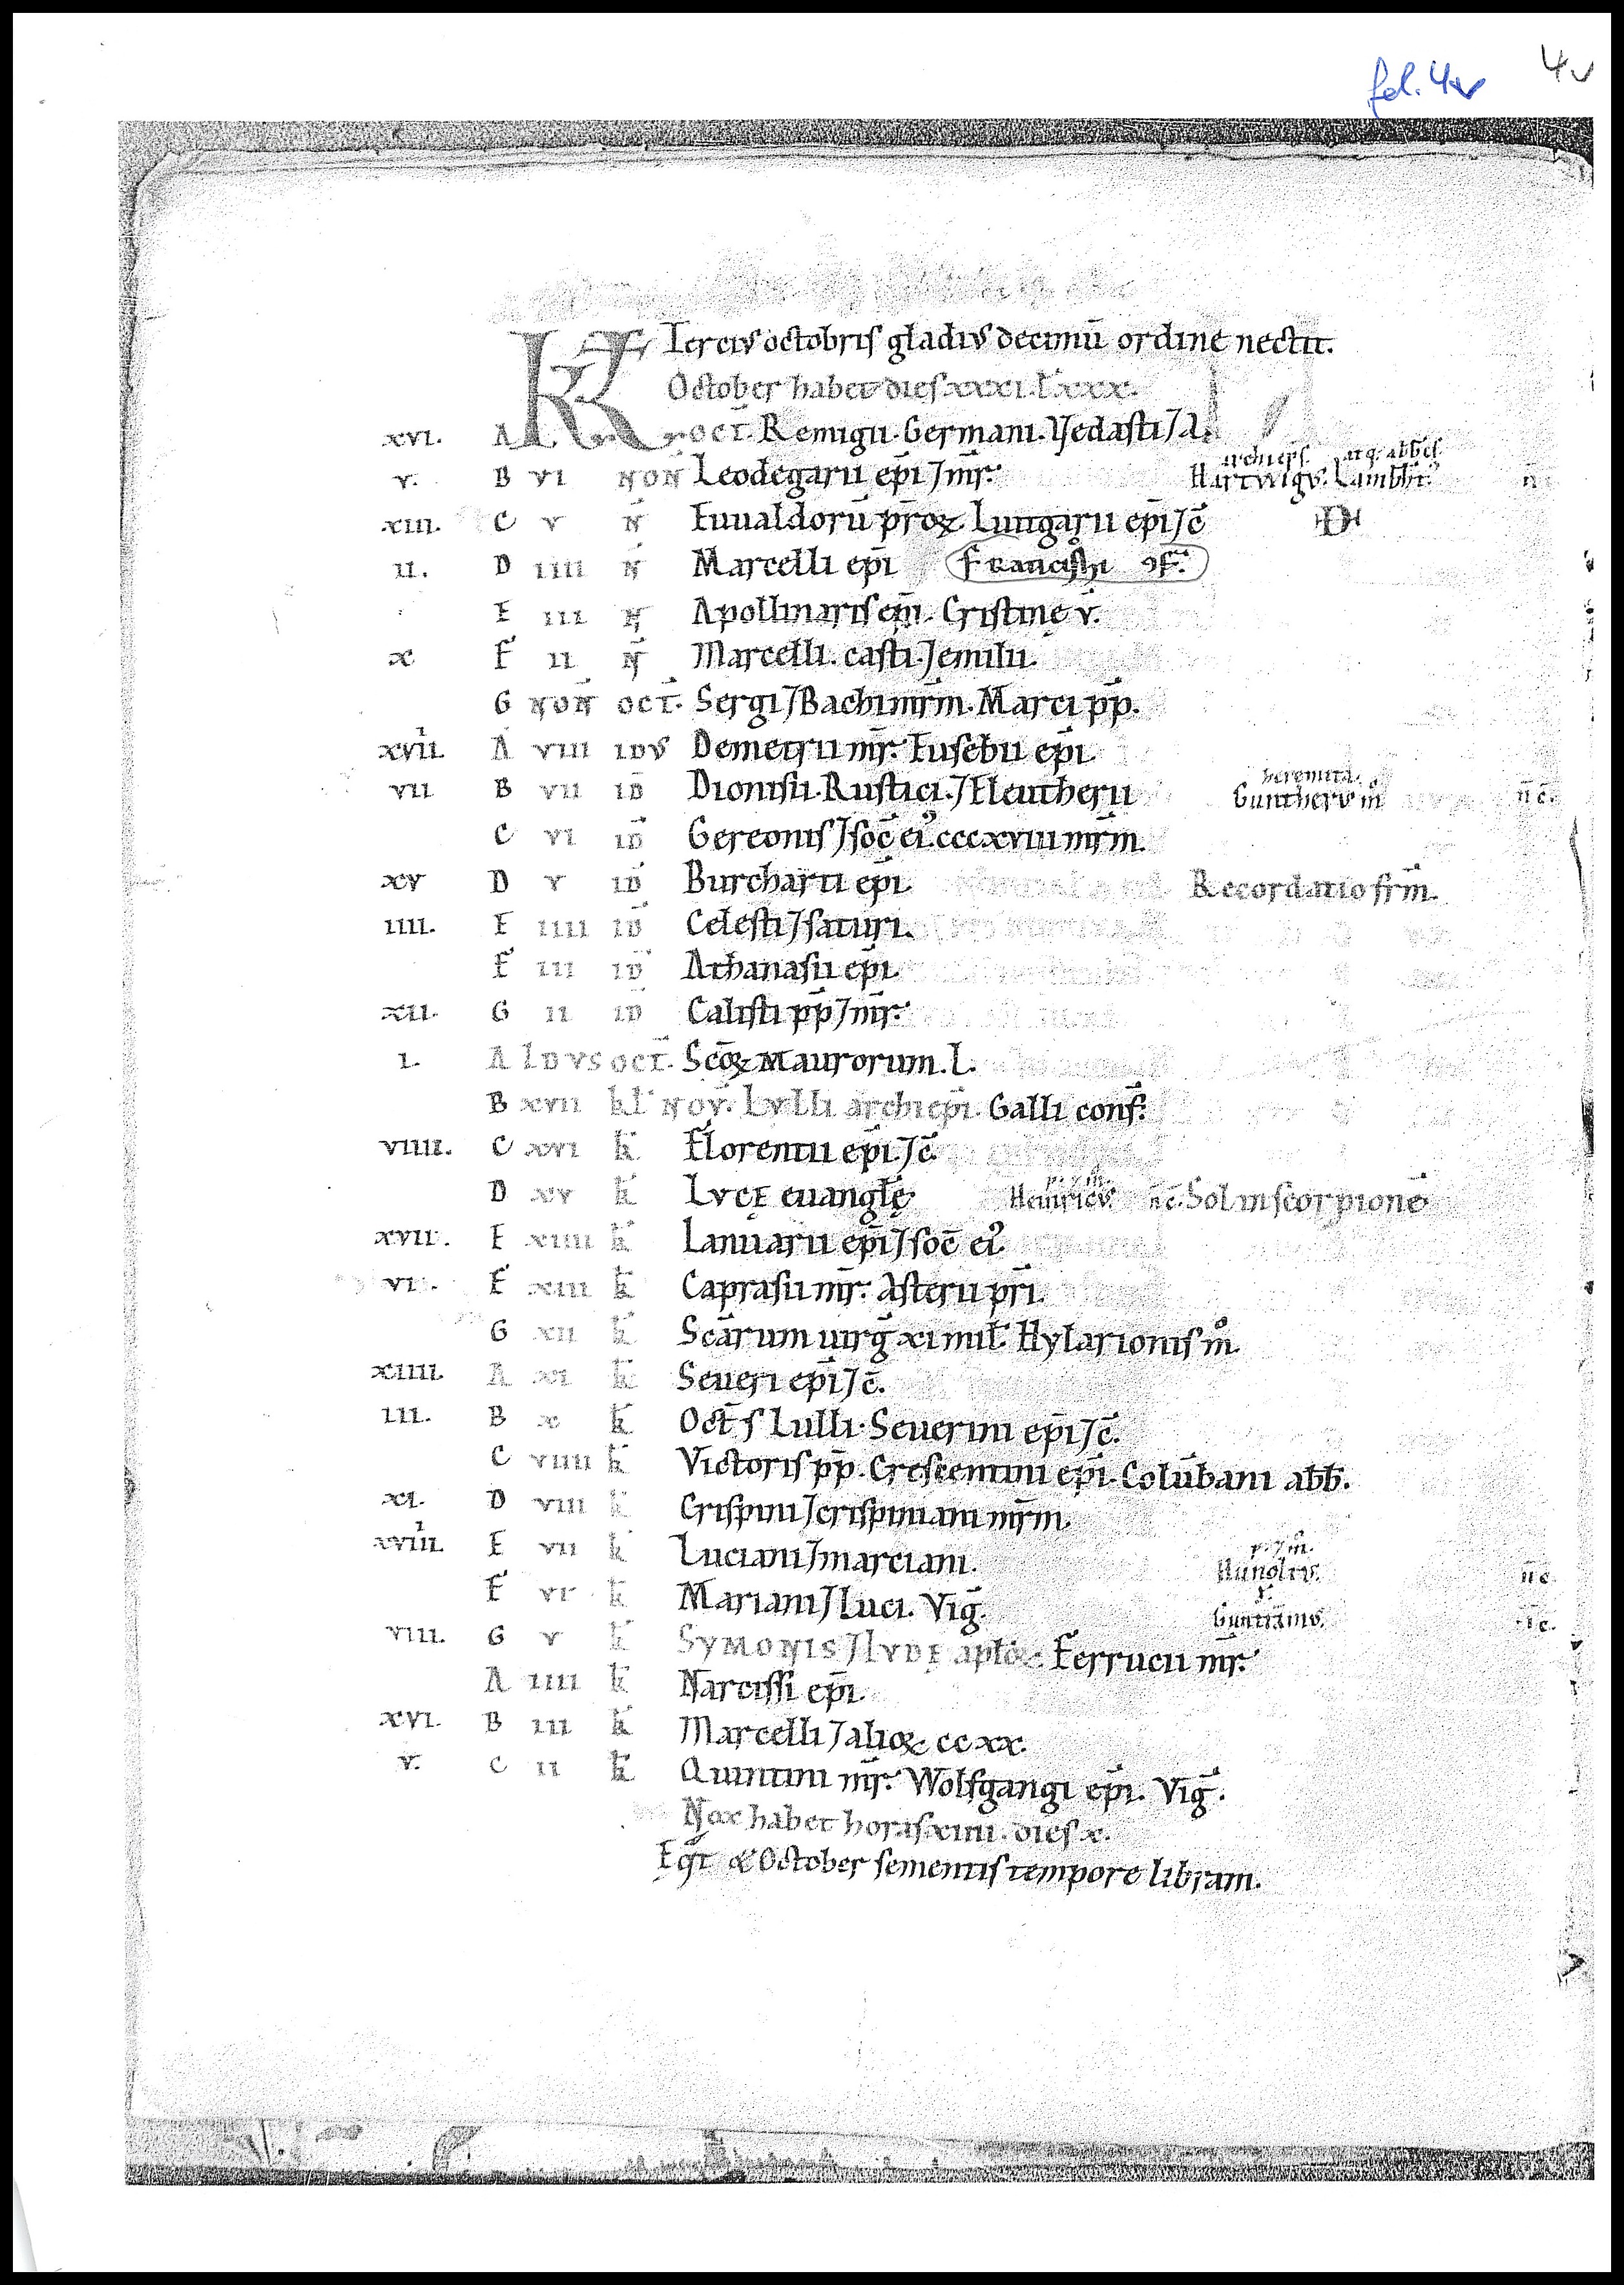 fol. 4v
4v
KL Tercius octobris gladius decimū ordine nectit.
October habet dies xxxi. l' xxx.
xvi. A oct̄. Remigii. Germani. Vedasti ⁊ A.
archiep̄s. atq; abb̄es.
v. B vi non̄ Leodegarii ep̄i ⁊ mr̄. Hartvvigus. Lamb̄ht'.
xiii. C v n̄ Euualdorū pr̄oꝝ. Luitgarii ep̄i ⁊ c̄
ii. D iiii n̄ Marcelli ep̄i Francisci ꝯf̄.
E iii n̄ Apollinaris em̄. Cristinę v̄.
x F ii n̄ Marcelli. casti. ⁊ emilii.
G non̄ oct̄. Sergi ⁊ Bachi mr̄m. Marci pp̄.
xviii A viii idus Demetrii mr̄. Eusebii ep̄i
heremita.
vii B vii id̄ Dionisii. Rustici. ⁊ Eleutherii Guntherus m̊ n̄ c̄.
C vi id̄ Gereonis ⁊ soc̄ ei'. cccxviii mr̄m.
xv D v id̄ Burcharti ep̄i. Recordatio fr̄m.
iiii. E iiii id̄ Celesti ⁊ saturi.
F iii id̄ Athanasii ep̄i.
xii. G ii id̄ Calisti pp̄ ⁊ mr̄.
i. A Idvs oct̄. Sc̄oꝝ Maurorum. L.
B xvii kl' nov̄. Lvlli archiep̄i. Galli conf̄.
viiii. C xvi k̄ Florentii ep̄i ⁊ c̄.
p. ⁊ m̊.
D xv k̄ Lvcę euangl̄ę Heinricus. n̄c̄. Sol in scorpionē
xvii. E xiiii k̄ Ianuarii ep̄i ⁊ soc̄ ei'.
vi. F xiii k̄ Caprasii mr̄. Asterii pr̄i.
G xii k̄ Sc̄arum uirḡ xi mil'. Hylarionis m̊.
xiiii. A xi k̄ Seueri ep̄i ⁊ c̄.
iii. B x k̄ Oct̄ s Lulli. Seuerini ep̄i ⁊ c̄.
C viiii k̄ Victoris pp̄. Crescentini ep̄i. Colūbani abb̄.
xi. D viii k̄ Crispini ⁊ crispiniani mr̄m.
p. ⁊ m̊.
xviiii. E vii k̄ Luciani ⁊ marciani. Hunoltus. n̄ c.
F vi k̄ Mariani ⁊ Luci. Viḡ. Guntrāmus. n̄ c.
viii. G v k̄ Symonis ⁊ Ivdę apl̄oꝝ. Ferrucii mr̄.
A iiii k̄ Narcissi ep̄i.
xvi. B iii k̄ Marcelli ⁊ alioꝝ ccxx.
v. C ii k̄ Quintini mr̄. Wolfgangi ep̄i. Viḡ.
Nox habet horas xiiii. dies x.
Eq̄t & October sementis tempore libram.